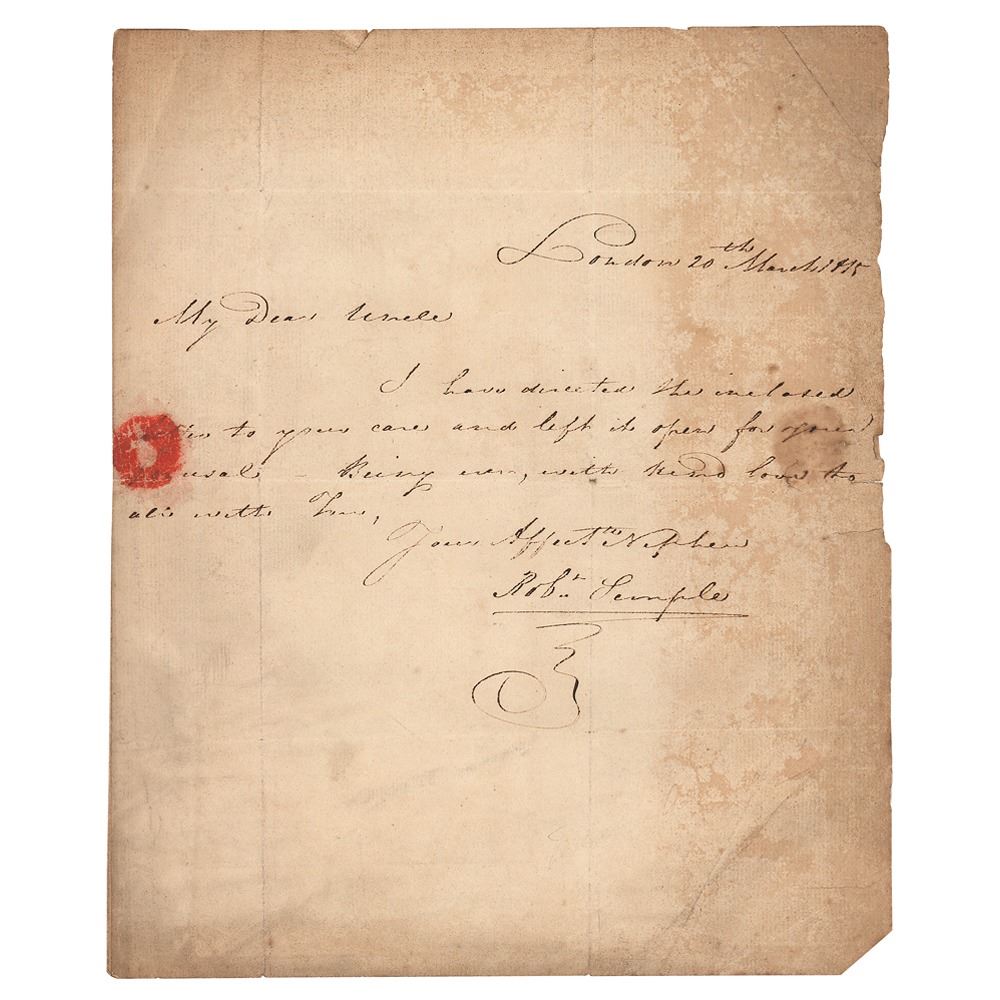 London 20th March 1815
My Dear Uncle
I have directed the inclosed
to your care and left it open for your
perusal – Being ever, with kind love to
all with You,
Your Affectte Nephew
Robt Semple